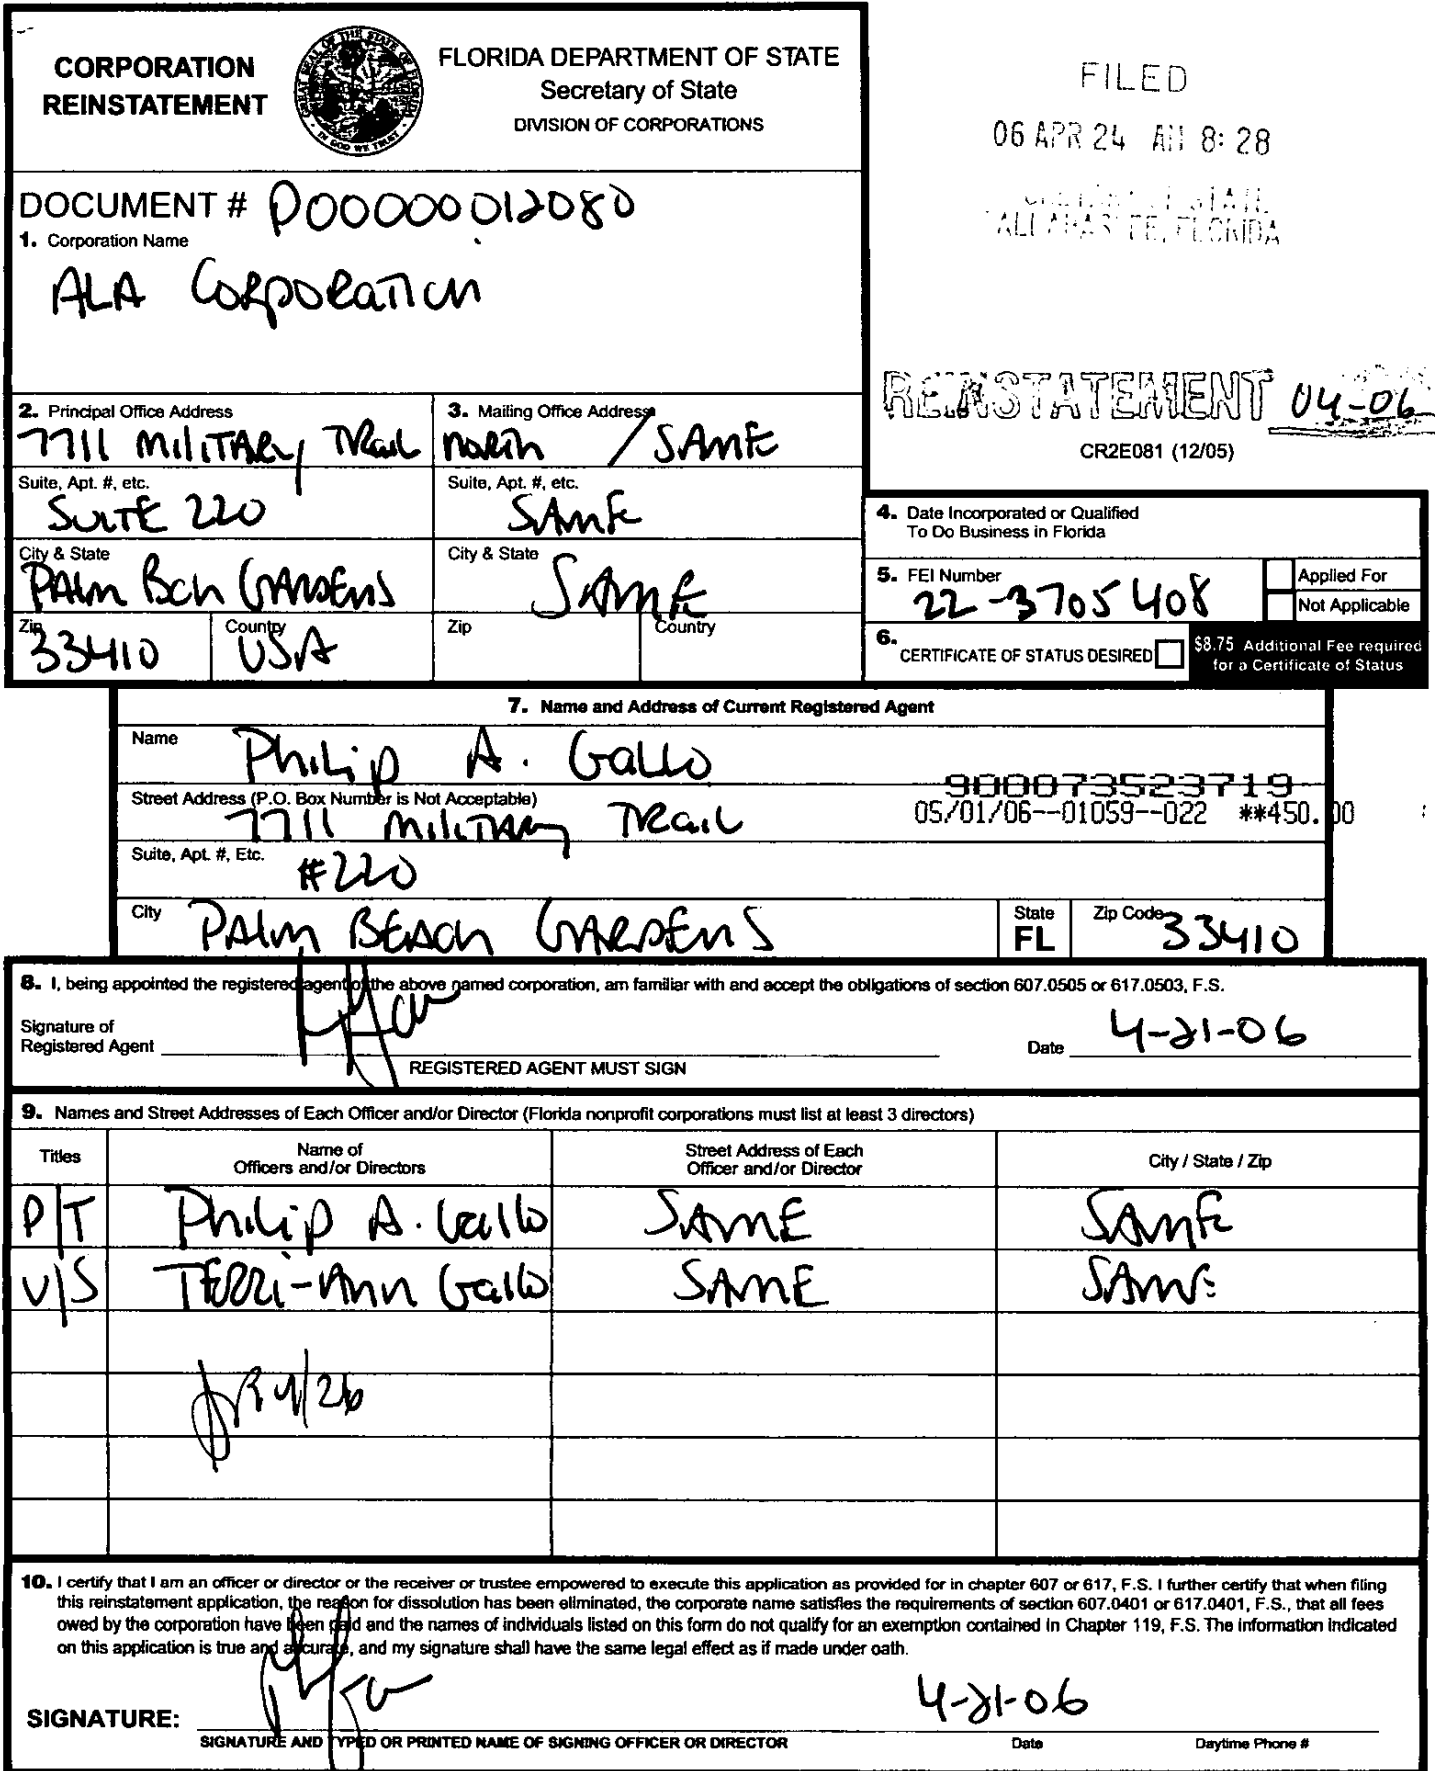 CORPORATION
REINSTATEMENT
FLORIDA DEPARTMENT OF STATE
Secretary of State
DIVISION OF CORPORATIONS
FILED
06 APR 24 AM 8: 28
TALLAHASSEE, FLORIDA
DOCUMENT # P00000012080
1. Corporation Name
ALA Corporation
REINSTATEMENT 04-06
CR2E081 (12/05)
2. Principal Office Address
7711 Military Trail
3. Mailing Office Address
North / SAME
Suite, Apt. #, etc.
SUITE 220
Suite, Apt. #, etc.
SAME
City & State
PALM Bch GARDENS
City & State
SAME
Zip
33410
Country
USA
Zip
Country
4. Date Incorporated or Qualified
To Do Business in Florida
5. FEI Number
22-3705408
Applied For
Not Applicable
6. CERTIFICATE OF STATUS DESIRED
$8.75 Additional Fee required
for a Certificate of Status
7. Name and Address of Current Registered Agent
Name
Philip A. Gallo
900073523719
05/01/06--01059--022 **450.00
Street Address (P.O. Box Number is Not Acceptable)
7711 Military Trail
Suite, Apt. #, Etc.
#220
City
PALM BEACH GARDENS
State
FL
Zip Code
33410
8. I, being appointed the registered agent of the above named corporation, am familiar with and accept the obligations of section 607.0505 or 617.0503, F.S.
Signature of
Registered Agent
REGISTERED AGENT MUST SIGN
Date 4-21-06
9. Names and Street Addresses of Each Officer and/or Director (Florida nonprofit corporations must list at least 3 directors)
Titles
Name of
Officers and/or Directors
Street Address of Each
Officer and/or Director
City / State / Zip
P/T Philip A. Gallo SAME SAME
V/S TERRI-Ann Gallo SAME SAME
4/26
10. I certify that I am an officer or director or the receiver or trustee empowered to execute this application as provided for in chapter 607 or 617, F.S. I further certify that when filing
this reinstatement application, the reason for dissolution has been eliminated, the corporate name satisfies the requirements of section 607.0401 or 617.0401, F.S., that all fees
owed by the corporation have been paid and the names of individuals listed on this form do not qualify for an exemption contained in Chapter 119, F.S. The information indicated
on this application is true and accurate, and my signature shall have the same legal effect as if made under oath.
SIGNATURE:
4-21-06
SIGNATURE AND TYPED OR PRINTED NAME OF SIGNING OFFICER OR DIRECTOR
Date
Daytime Phone #